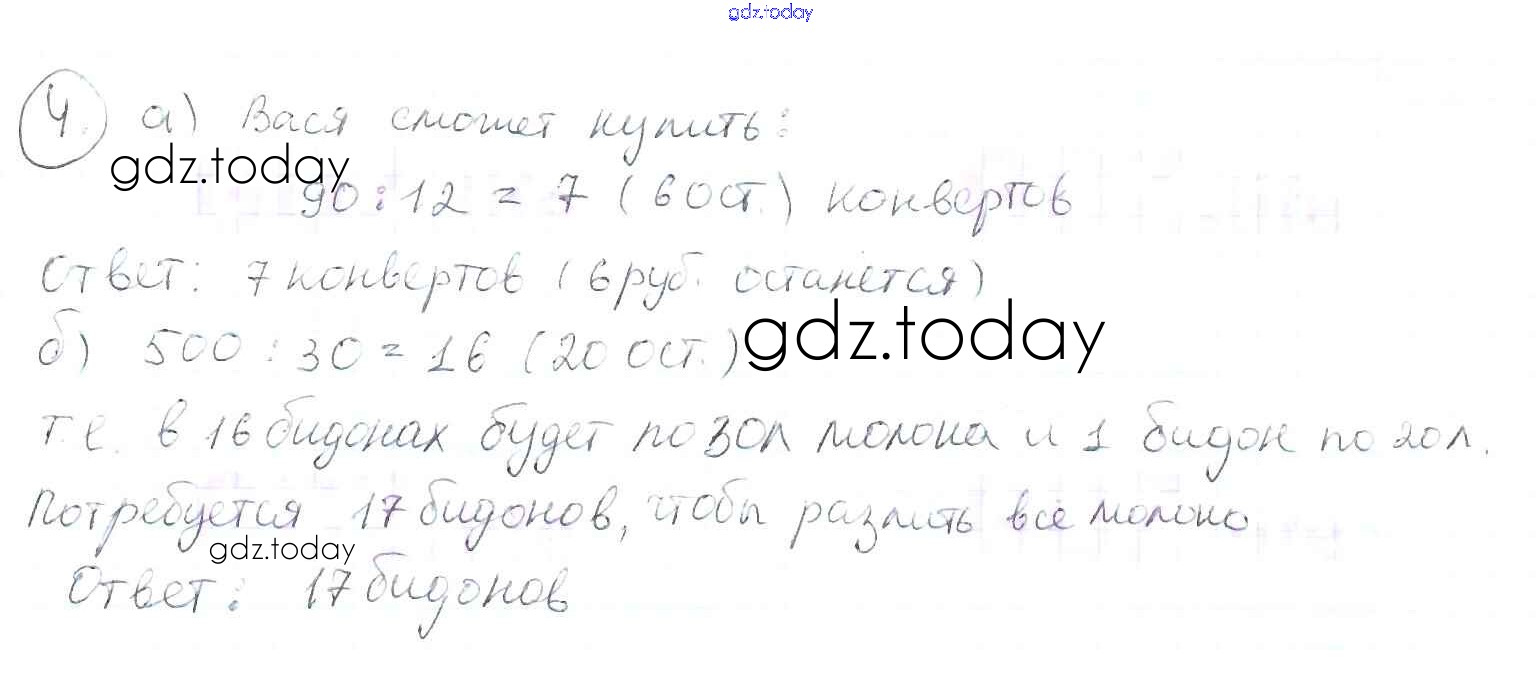 gdz.today
4. а) Вася сможет купить:
gdz.today
90 : 12 = 7 (6 ост.) конвертов
Ответ: 7 конвертов (6 руб. останется)
б) 500 : 30 = 16 (20 ост.)
gdz.today
т.е. в 16 бидонах будет по 30 л молока и 1 бидон по 20 л.
Потребуется 17 бидонов, чтобы разлить всё молоко.
gdz.today
Ответ: 17 бидонов